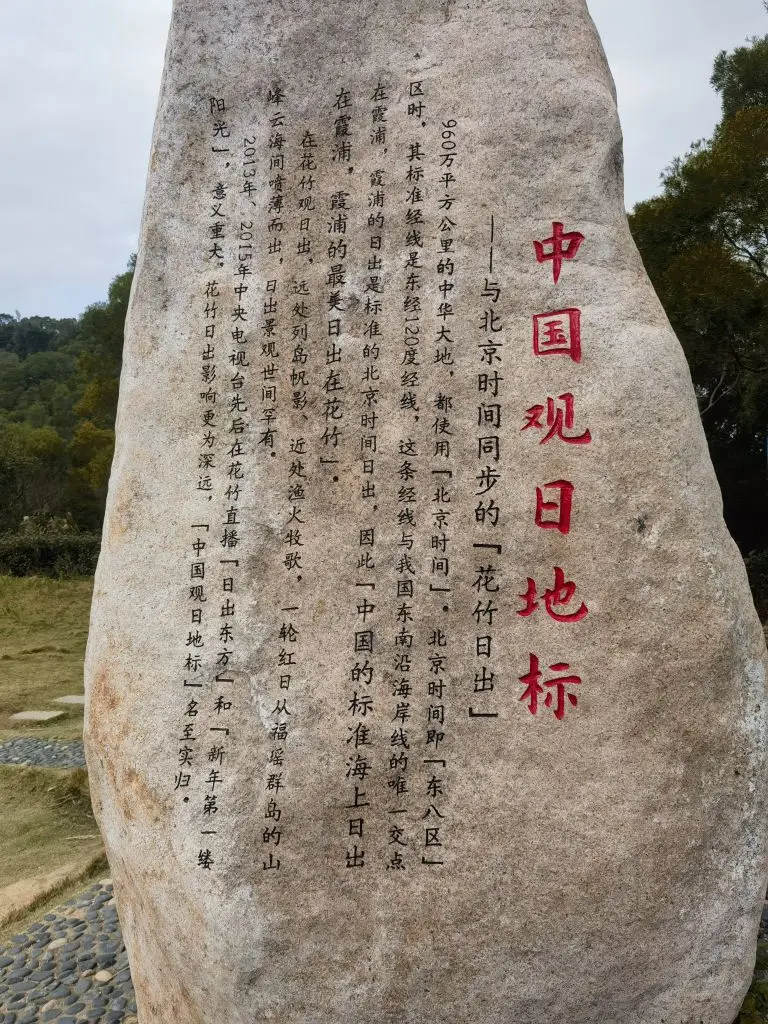 中国观日地标
——与北京时间同步的「花竹日出」
960万平方公里的中华大地，都使用「北京时间」。北京时间即「东八区」
区时，其标准经线是东经120度经线，这条经线与我国东南沿海岸线的唯一交点
在霞浦，霞浦的日出是标准的北京时间日出，因此「中国的标准海上日出
在霞浦，霞浦的最美日出在花竹」。
在花竹观日出，远处列岛帆影、近处渔火牧歌，一轮红日从福瑶群岛的山
峰云海间喷薄而出，日出景观世间罕有。
2013年、2015年中央电视台先后在花竹直播「日出东方」和「新年第一缕
阳光」，意义重大。花竹日出影响更为深远，「中国观日地标」名至实归。